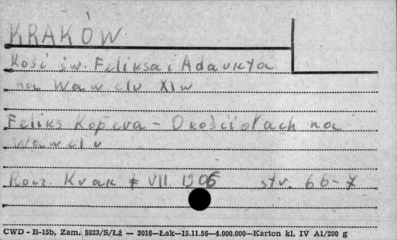 KRAKÓW
Kość św. Feliksa i Adaukta
na Wawelu XI w
Feliks Kopera - O kościołach na
Wawelu
Rocz. Krak VII 1905 str. 66-7
CWD - B-15b, Zam. 5823/S/Łż — 2016—Łak—15.11.56—4.000.000—Karton kl. IV A1/200 g